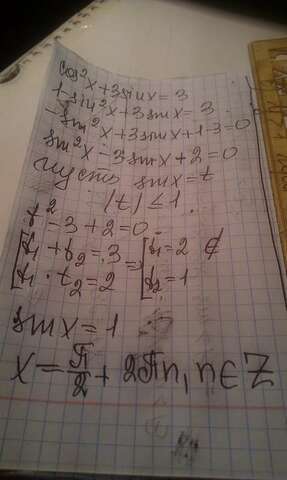 cos²x + 3sinx = 3
1 - sin²x + 3sinx = 3
-sin²x + 3sinx + 1 - 3 = 0
sin²x - 3sinx + 2 = 0
пусть sinx = t
|t| ≤ 1
t² - 3 + 2 = 0
[t₁ + t₂ = 3 ⇒ [t₁ = 2 ∉
[t₁ · t₂ = 2 [t₂ = 1
sinx = 1
x = π/2 + 2πn, n ∈ Z